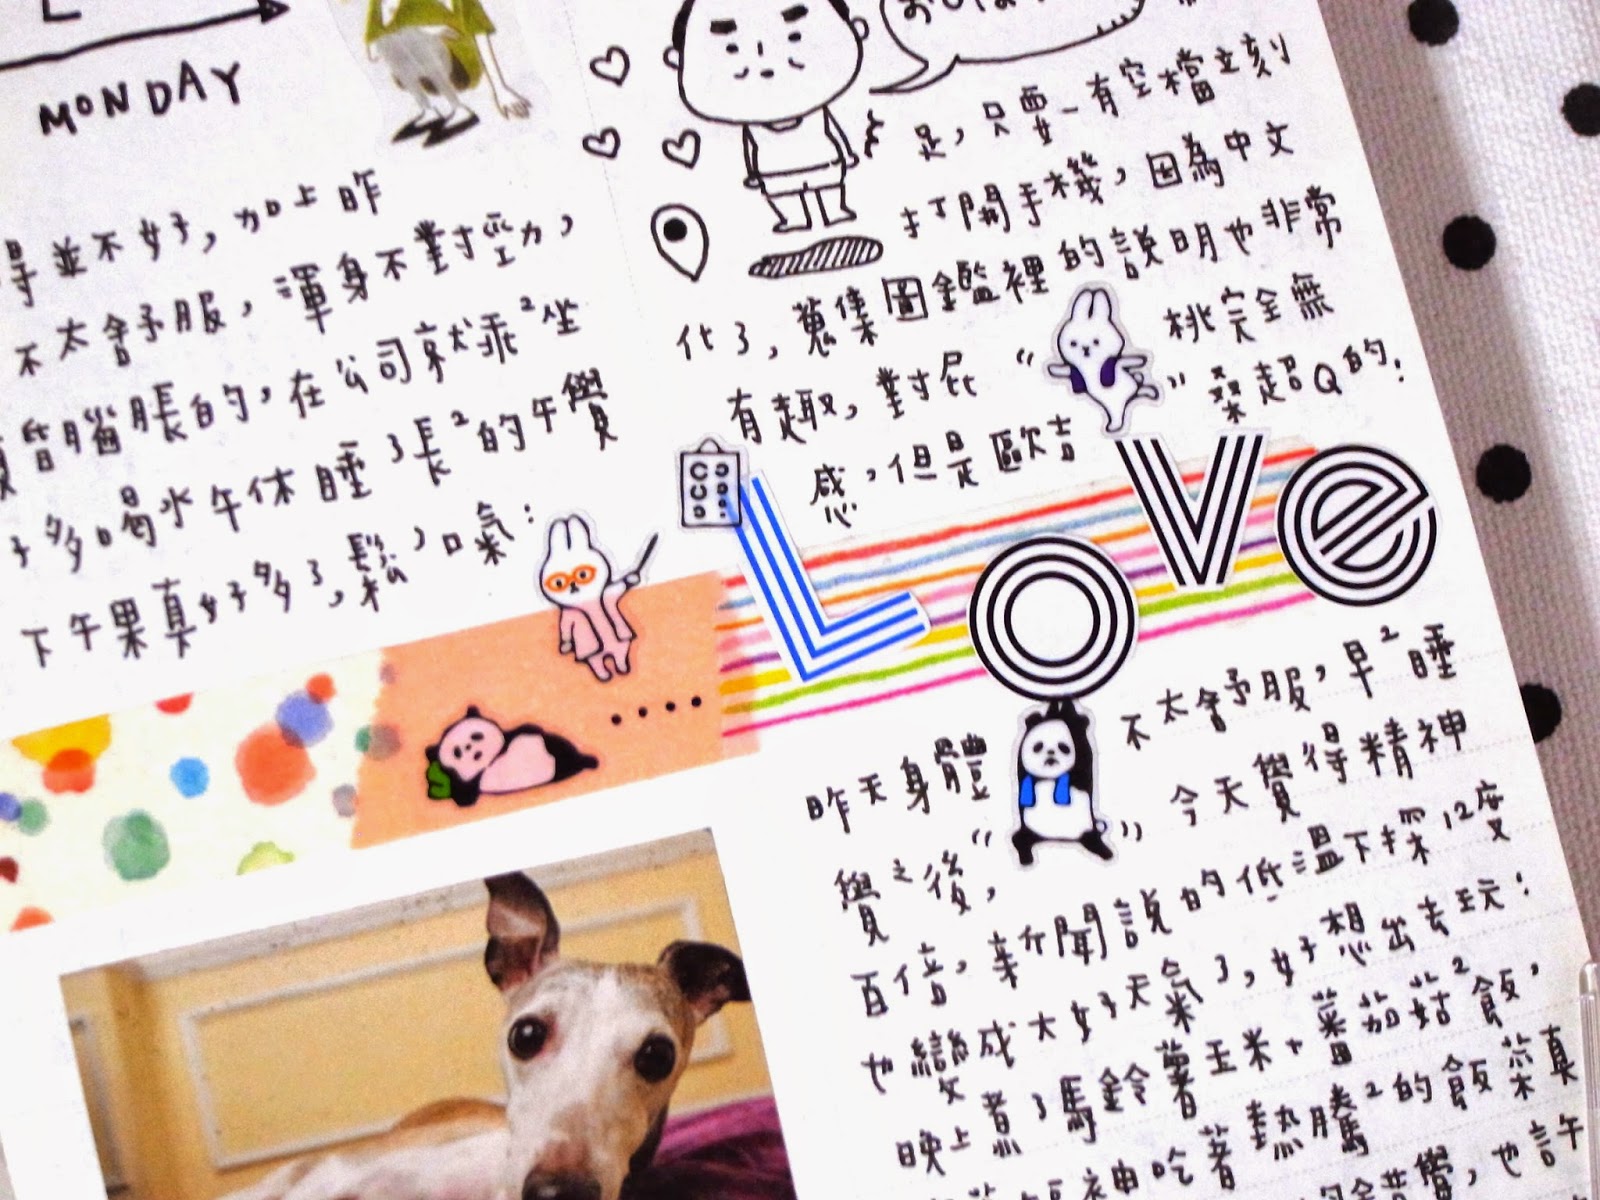 MONDAY
得並不好,加上昨
不太舒服,渾身不對勁,
昏腦脹的,在公司就乖²坐
多喝水午休睡了長²的午覺
下午果真好多了,鬆了口氣:
足,只要一有空檔立刻
打開手機,因為中文
化了,蒐集圖鑑裡的說明也非常
有趣,對屁“ ”桃完全無
感,但是歐吉 桑超Q的:
Love
昨天身體不太舒服,早²睡
覺之後,“ ”今天覺得精神
百倍,新聞說的低溫下探12度
也變成大好天氣了,好想出去玩:
晚上煮了馬鈴薯玉米+蕃茄菇²飯,
神吃著熱騰²的飯菜真
覺,也許